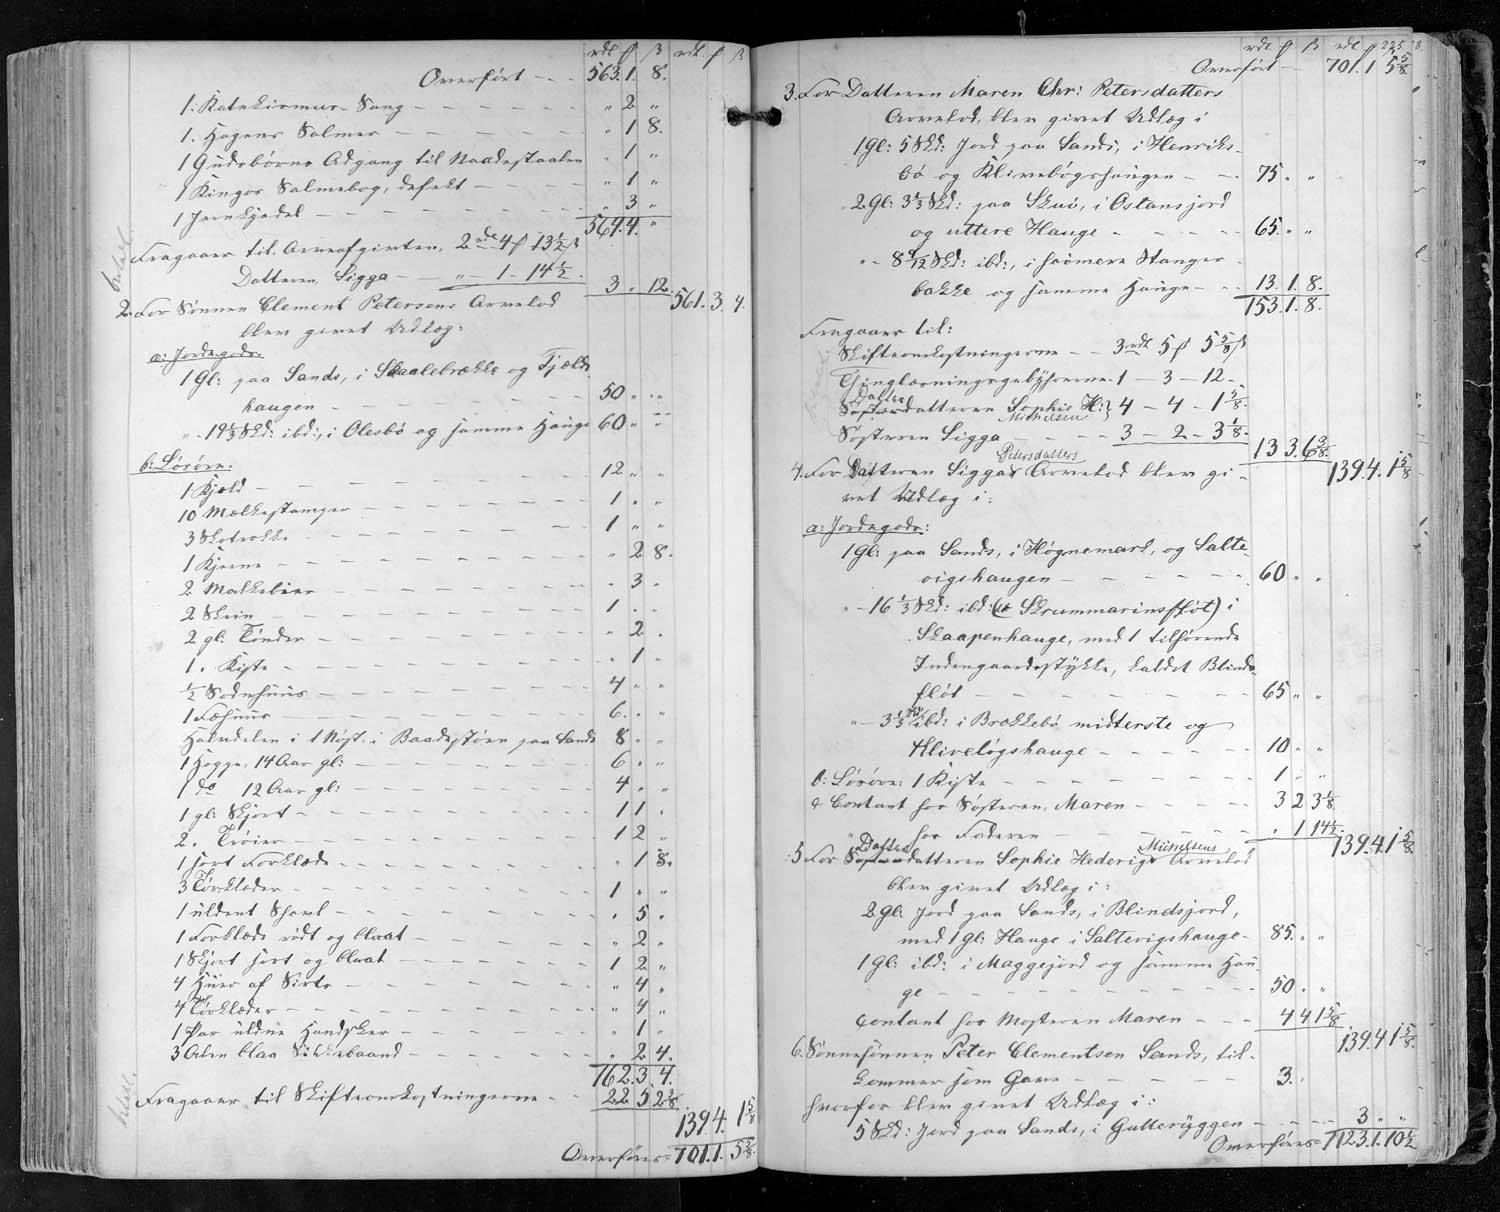 rdl ƒ β rdl. ƒ β
Overført - - 563. 1. 8.
1. Katekismus-Sang - - - „ 2 „
1. Hagens Salmer - - - „ 1 8.
1 Gudsbørns Adgang til Naadestoelen „ 1 „
1 Kingos Salmebog, defekt - - „ 1 „
1 Jernkjedel - - - „ 3 „
564. 4. „
Fragaaer til Arveafgiften. 2 rdl 4 ƒ 13½ β
Datteren Sigga - „ 1 - 14½. 3 „ 12.
561. 3. 4.
2. For Sønnen Clement Petersens Arvelod
blev givet Udlæg:
a: Jordegods:
1 Gl: paa Sands, i Skaalebrekke og Fjælds
haugen - - - 50 „ „
„ - 19⅓ Skd: ibd:, i Olesbø og samme Hauge 60 „ „
b: Løsøre:
1 Kjæld - - - 12 „ „
10 Mælkestamper - - - 1 „ „
3 Skotrokke - - - 1 „ „
1 Kjerne - - - „ 2 8.
2 Malkebier - - - „ 3 „
2 Skrin - - - 1 „ „
2 gl: Tønder - - - „ 2 „
1. Kiste - - - „ 1 „
½ Sodnhuus - - - 4 „ „
1 Fæhuus - - - 6. „ „
Halvdelen i 1 Nøst. i Baadestøen paa Sands 8 „ „
1 Hoppe, 14 Aar gl: - - 6 „ „
1 do 12 Aar gl: - - 4 „ „
1 gl: Skjort - - - 1 1 „
2. Trøier - - - 1 2 „
1 sort Forklæde - - - „ 1 8.
3 Tørklæder - - - 1 „ „
1 uldent Shawl - - - „ 5 „
1 Forklæde rødt og blaat - - - „ 2 „
1 Skjort sort og blaat - - - 1 2 „
4 Huer af Sirts - - - „ 4 „
4 Tørklæder - - - „ 4 „
1 Par uldne Handsker - - - „ 1 „
3 Alen blaa Silkebaand - - - „ 2 4.
162. 3 4.
Fragaaer til Skifteomkostningerne - - 22 5 2⅜.
139. 4. 1⅝
Overføres = 701. 1. 5⅝.
225
rdl ƒ β rdl ƒ β.
Overført - 701. 1 5⅝.
3. For Datteren Maren Chr: Petersdatters
Arvelod, blev givet Udlæg i
1 Gl: 5 Skd: Jord paa Sands, i Henriks-
bø og Klivebøgshaugen - - 75 „ „
2 Gl: 3⅓ Skd: paa Skuø, i Ostansjord
og uttere Hauge - - - 65. „ „
„ - 8 Skd: ibd:, i heimere Stanger
bakke og samme Hauge - - 13. 1. 8.
153. 1. 8.
Fragaaer til:
Skifteomkostningerne - - 3 rdl 5 ƒ 5⅝ β
Thinglæsningsgebyhrerne - 1 - 3 - 12 -
Datter
datteren Sophie H: Michelsen } 4 - 4 - 1⅝.
Søsteren Sigga - - - 3 - 2 - 3⅛.
13 3. 6⅜.
139. 4. 1⅝
4. For Datteren Siggas Petersdatters Arvelod blev gi-
vet Udlæg i:
a: Jordegods:
1 Gl: paa Sands, i Høgnemard, og Salte-
vigshaugen - - - 60 „ „
„ - 16⅓ Skd: ibd: ( Skrummarinsfløt) i
Skaapenhauge, med 1 tilhørende
Indengaardsstykke, kaldet Blinds-
fløt - - - 65 „ „
„ - 3⅓ Skd ibd: i Brekkebø midterste og
Kliveløgshauge - - - 10 „ „
b: Løsøre: 1 Kiste - - - 1 „ „
c Contant hos Søsteren, Maren - - - 3 2 3⅛
„ hos Faderen - - - „ 1 14½.
139. 4. 1⅝.
5 For Datter datteren Sophie Hedevig Michelsens Arvelod
blev givet Udlæg i:
2 Gl: Jord paa Sands, i Blindsjord,
med 1 Gl: Hauge i Saltevigshauge - 85. „ „
1 Gl: ibd: i Maggejord og samme Hau-
ge - - - 50 „ „
Contant hos Mosteren Maren - - - 4 4 1⅝
139. 4 1⅝.
6. Sønnesønnen Peter Clementsen Sands, til-
kommer som Gave - - - 3. „
hvorfor blev givet Udlæg i:
5 Skd: Jord paa Sands, i Gulteryggen - - 3 „ „
Overføres = 1123. 1. 10½